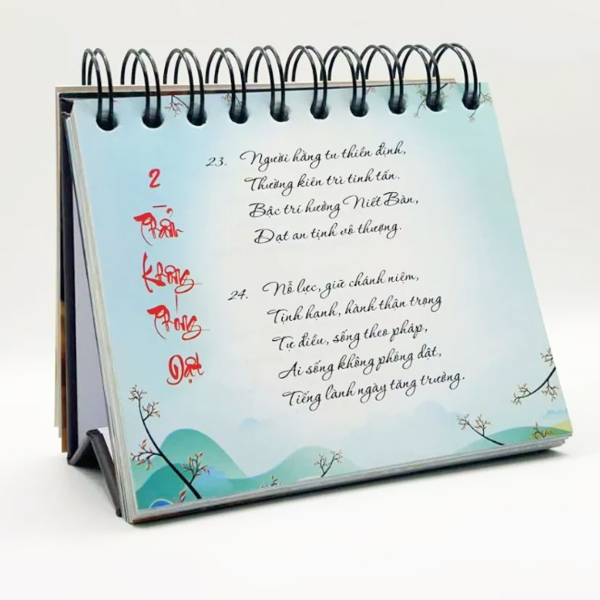 2
–
Phẩm
Không
Phóng
Dật
23. Người hằng tu thiền định,
Thường kiên trì tinh tấn.
Bậc trí hưởng Niết Bàn,
Đạt an tịnh vô thượng.
24. Nỗ lực, giữ chánh niệm,
Tịnh hạnh, hành thận trọng
Tự điều, sống theo pháp,
Ai sống không phóng dật,
Tiếng lành ngày tăng trưởng.